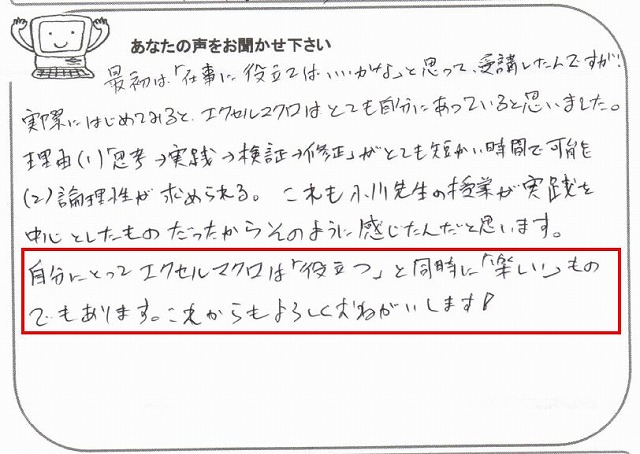 あなたの声をお聞かせ下さい
最初は、「仕事に役立てばいいかな」と思って、受講したんですが、
実際にはじめてみると、エクセルマクロはとても自分にあっていると思いました。
理由(1)「思考→実践→検証→修正」がとても短かい時間で可能
(2)論理性が求められる。これも小川先生の授業が実践を
中心としたものだったからそのように感じたんだと思います。
自分にとってエクセルマクロは「役立つ」と同時に「楽しい」もの
でもあります。これからもよろしくおねがいします!